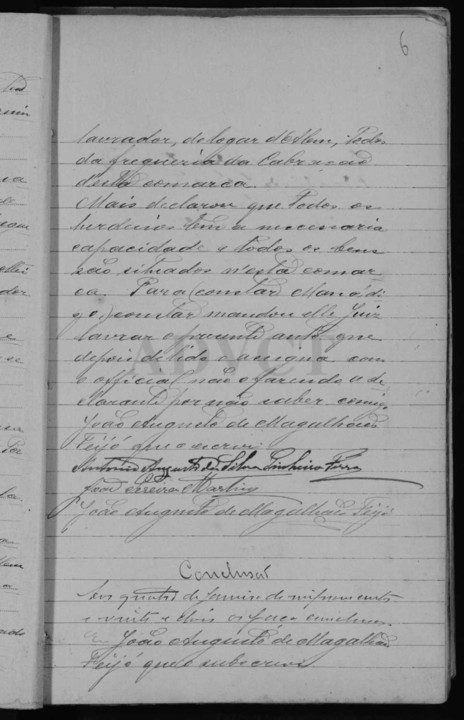 6
lavrador, do logar d'Alem, todos
da freguezia da
d'esta comarca.
Mais declarou que todos os
herdeiros tem a necessaria
capacidade e todos os bens
são situados n'esta comar
ca. Para (constar Mano, di
go,) constar mandou elle Juiz
lavrar o presente auto que
depois de lido assigna com
o official não o fazendo a de
clarante por não saber comigo
João Augusto de Magalhães
Feijó que o escrevi.
Antonio Augusto da Silva Pinheiro Ferro
Martins
João Augusto de Magalhães Feijó
Conclusão
Aos quatro de Janeiro de mil novecentos
e vinte e dois os faço conclusos.
Eu João Augusto de Magalhães
Feijó que o subscrevi
ADVCT